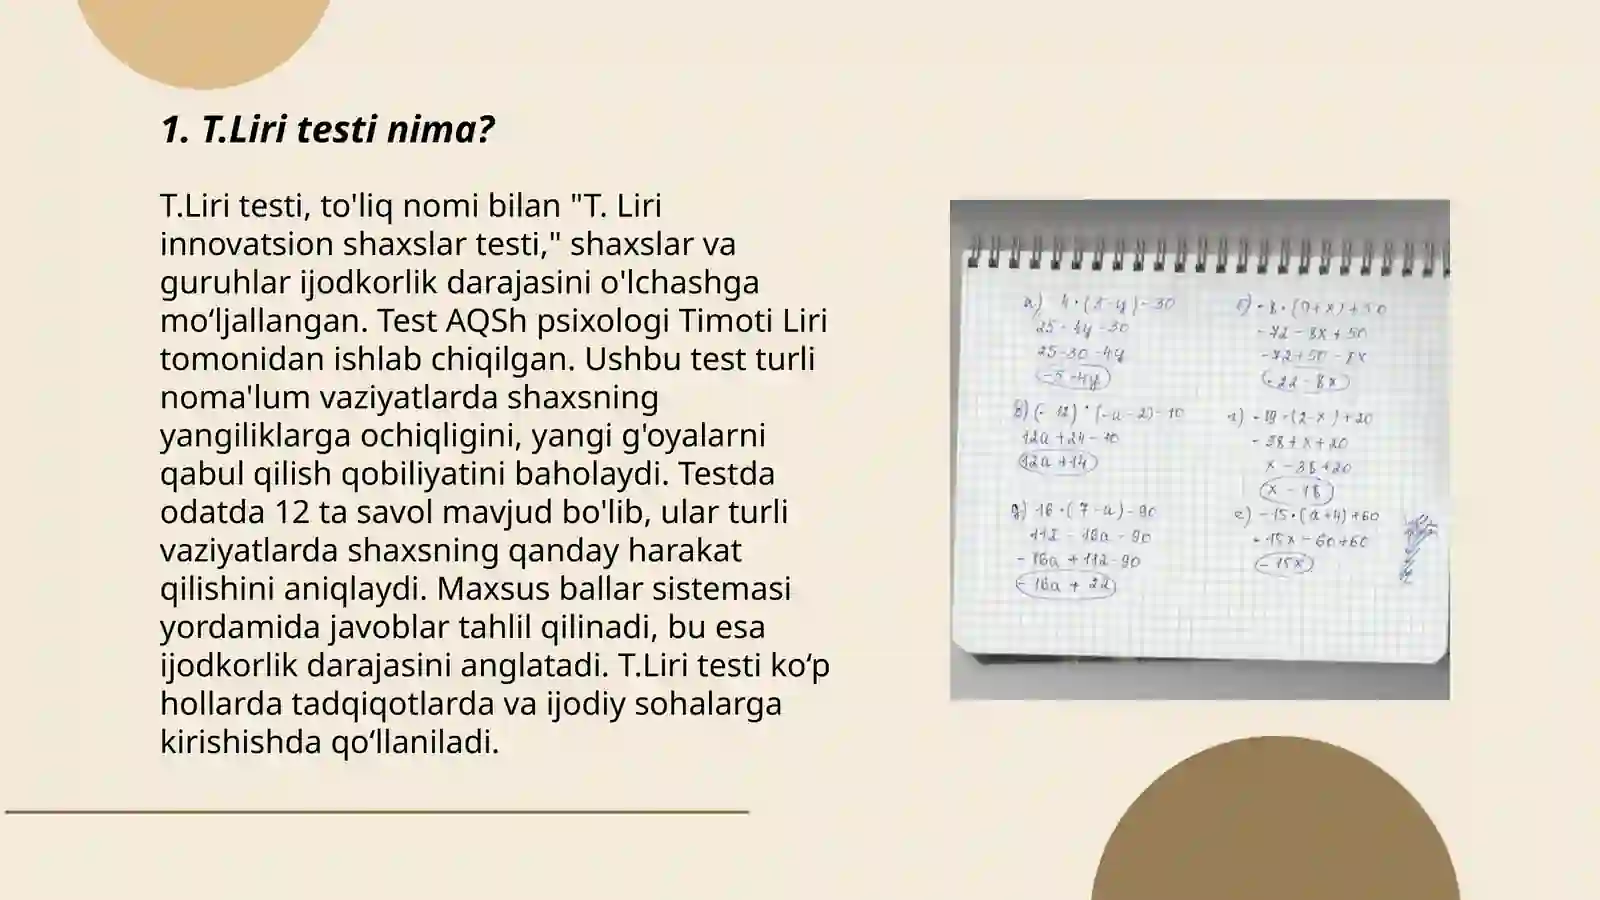 1. T.Liri testi nima?
T.Liri testi, to'liq nomi bilan "T. Liri
innovatsion shaxslar testi," shaxslar va
guruhlar ijodkorlik darajasini o'lchashga
mo‘ljallangan. Test AQSh psixologi Timoti Liri
tomonidan ishlab chiqilgan. Ushbu test turli
noma'lum vaziyatlarda shaxsning
yangiliklarga ochiqligini, yangi g'oyalarni
qabul qilish qobiliyatini baholaydi. Testda
odatda 12 ta savol mavjud bo'lib, ular turli
vaziyatlarda shaxsning qanday harakat
qilishini aniqlaydi. Maxsus ballar sistemasi
yordamida javoblar tahlil qilinadi, bu esa
ijodkorlik darajasini anglatadi. T.Liri testi ko‘p
hollarda tadqiqotlarda va ijodiy sohalarga
kirishishda qo‘llaniladi.
25-30-4y
-5-4y
12a+24-10
12a+14
112-16a-90
-16a+112-90
-16a+22
-72-8x+50
-72+50-8x
-22-8x
x-38+20
x-18
е) -15·(x+4)+60
-15x-60+60
-15x